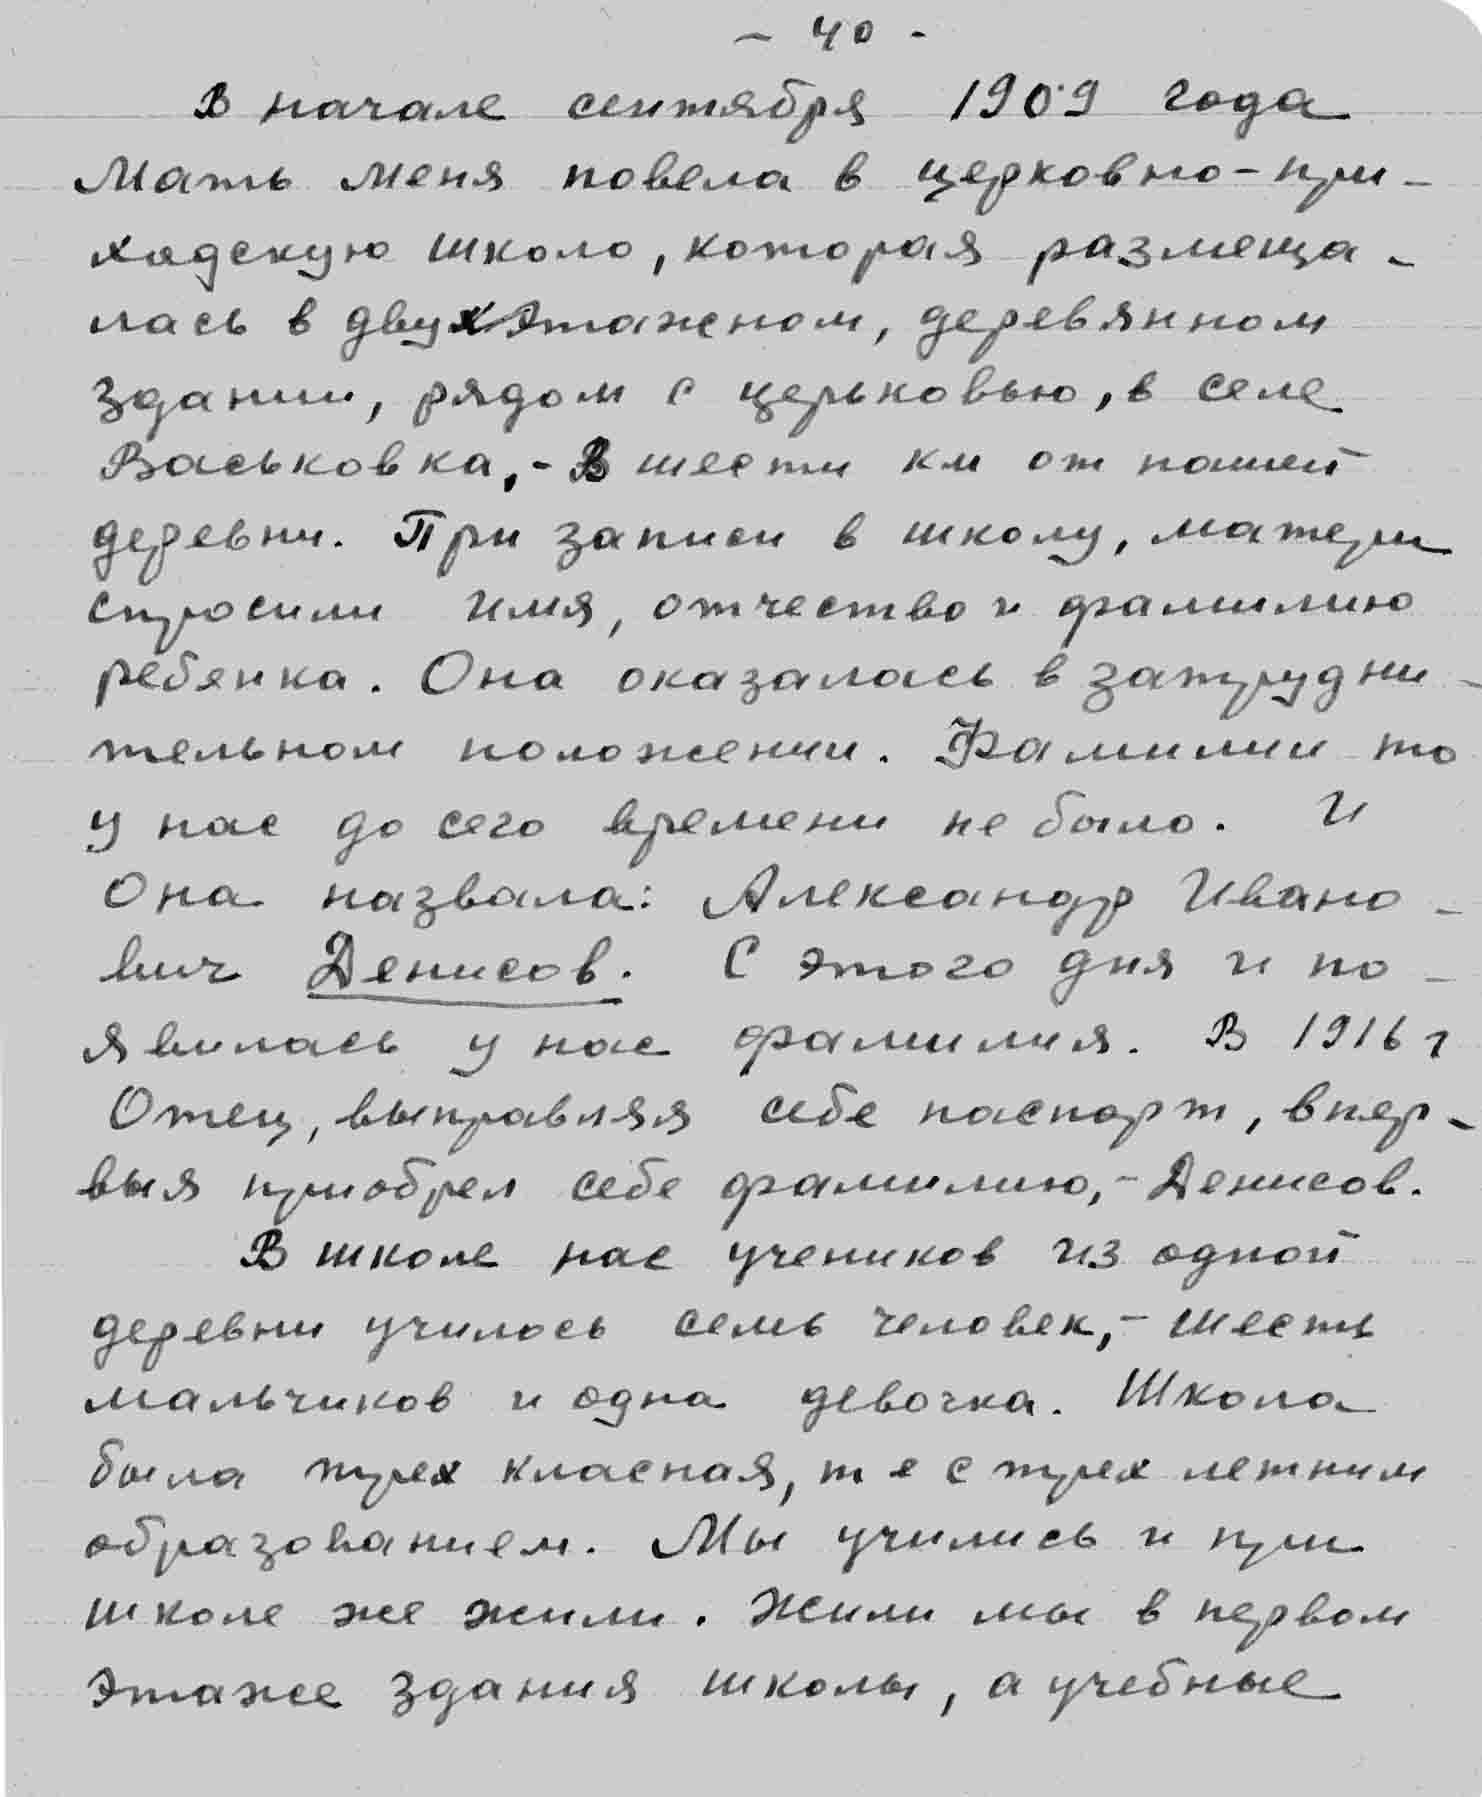 - 40 -
В начале сентября 1909 года
Мать меня повела в церковно-при-
хадскую школо, которая размеща-
лась в двухэтажном, деревянном
здании, рядом с церьковью, в селе
Васьковка,- В шести км от нашей
деревни. При записи в школу, матери
спросили имя, отчество и фамилию
ребянка. Она оказалась в затрудни-
тельном положении. Фамилии то
у нас до сего времени не было. И
Она назвала: Александр Ивано-
вич Денисов. С этого дня и по-
явилась у нас фамилия. В 1916 г
Отец, выправляя себе паспорт, впер-
выя приобрел себе фамилию,- Денисов.
В школе нас учеников из одной
деревни училось семь человек,- шесть
мальчиков и одна девочка. Школа
была трех класная, т е с трех летним
образованием. Мы учились и при
школе же жили. Жили мы в первом
этаже здания школы, а учебные